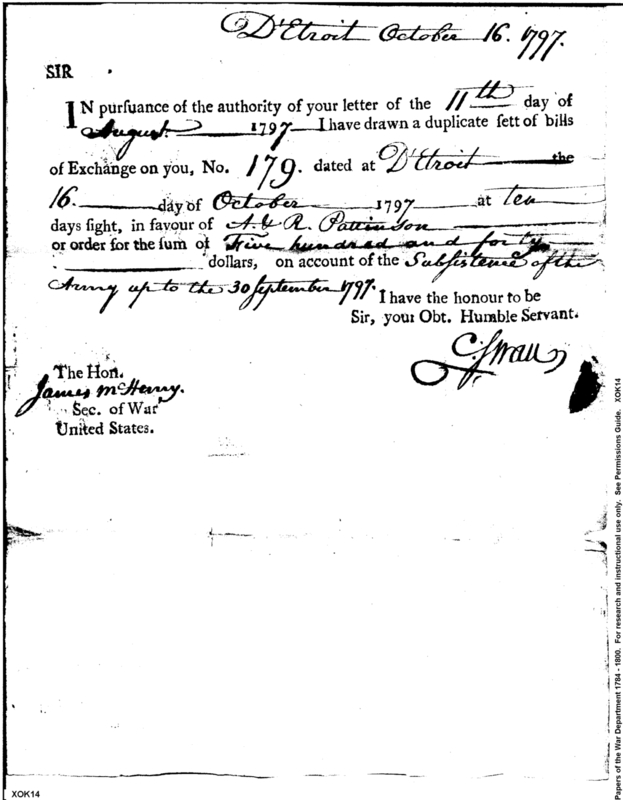 D'Etroit October 16. 1797.
SIR
IN purſuance of the authority of your letter of the 11th day of
August 1797 I have drawn a duplicate ſett of bills
of Exchange on you, No. 179. dated at D'Etroit the
16. day of October 1797 at ten
days ſight, in favour of A & R. Pattinson
or order for the ſum of Five hundred and forty
dollars, on account of the Subsistence of the
Army up to the 30 September 1797.
I have the honour to be
Sir, your Obt. Humble Servant.
C. Swan
The Hon.
James McHenry.
Sec. of War
United States.
Papers of the War Department 1784 - 1800. For research and instructional use only. See Permissions Guide. XOK14
XOK14